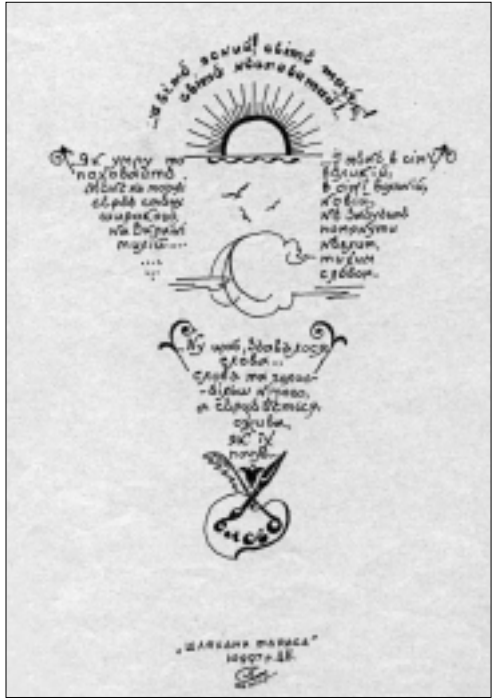 ...Світе ясний! Світе тихий!
Світе невповитий!...
Як умру то
поховайте
мене на могилі
серед степу
широкого
на Вкраїні
милій...
І мене в сім'ї
великій,
в сім'ї вольній,
новій,
не забудьте
пом'янути
незлим,
тихим
словом...
Ну щоб, здавалося
слова...
слова та голос-
-більш нічого,
а серце б'ється
ожива,
як їх
почує...
слово
"Шляхами Тараса"